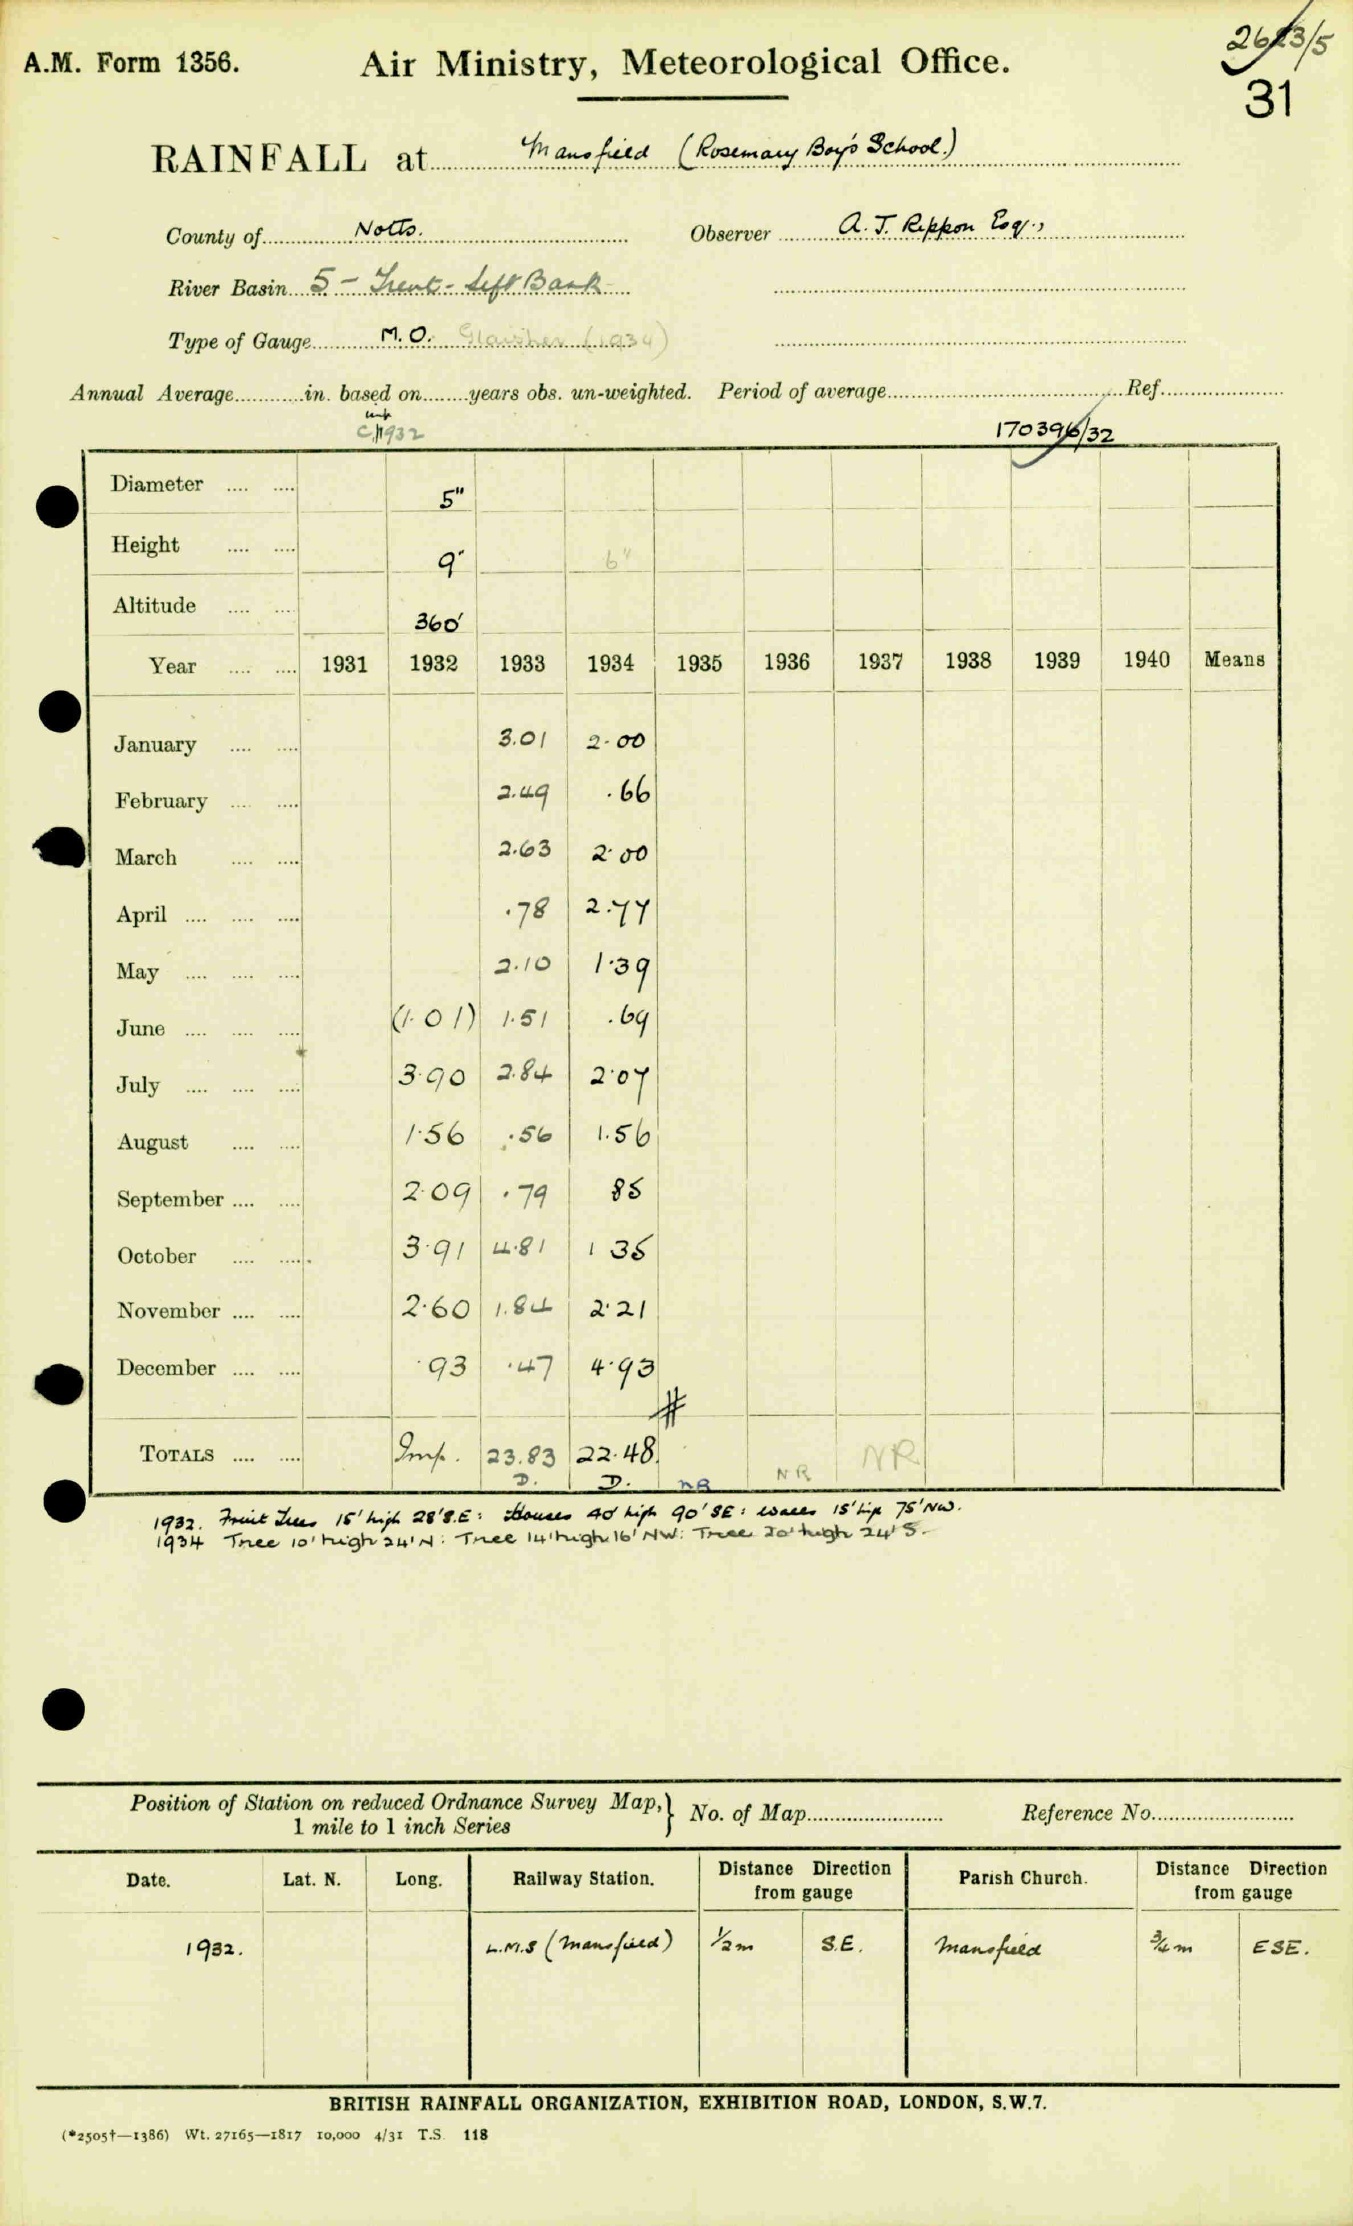 A.M. Form 1356.
Air Ministry, Meteorological Office.
31
RAINFALL at Mansfield (Rosemary Boy's School.)
County of Notts. Observer A. J. Rippon Esq.,
River Basin 5 - Trent - Left Bank
Type of Gauge M.O. Glaisher (1934)
Annual Average in. based on years obs. un-weighted. Period of average Ref.
1932
170396/32
Diameter 5"
Height 9" 6"
Altitude 360'
Year 1931 1932 1933 1934 1935 1936 1937 1938 1939 1940 Means
January 3.01 2.00
February 2.49 .66
March 2.63 2.00
April .78 2.77
May 2.10 1.39
June (1.01) 1.51 .69
July 3.90 2.84 2.07
August 1.56 .56 1.56
September 2.09 .79 85
October 3.91 4.81 1 35
November 2.60 1.84 2.21
December .93 .47 4.93
TOTALS Imp. 23.83 22.48
D. D. NR NR NR
1932. Fruit Trees 15' high 28' S.E: Houses 40' high 90' SE: walls 15' high 75' NW.
1934 Tree 10' high 24' N: Tree 14' high 16' NW: Tree 20' high 24' S.
Position of Station on reduced Ordnance Survey Map, 1 mile to 1 inch Series } No. of Map Reference No.
Date. Lat. N. Long. Railway Station. Distance Direction from gauge Parish Church. Distance Direction from gauge
1932. L.M.S (Mansfield) ½ m S.E. Mansfield ¾ m ESE.
BRITISH RAINFALL ORGANIZATION, EXHIBITION ROAD, LONDON, S.W.7.
(*2505†—1386) Wt. 27165—1817 10,000 4/31 T.S. 118